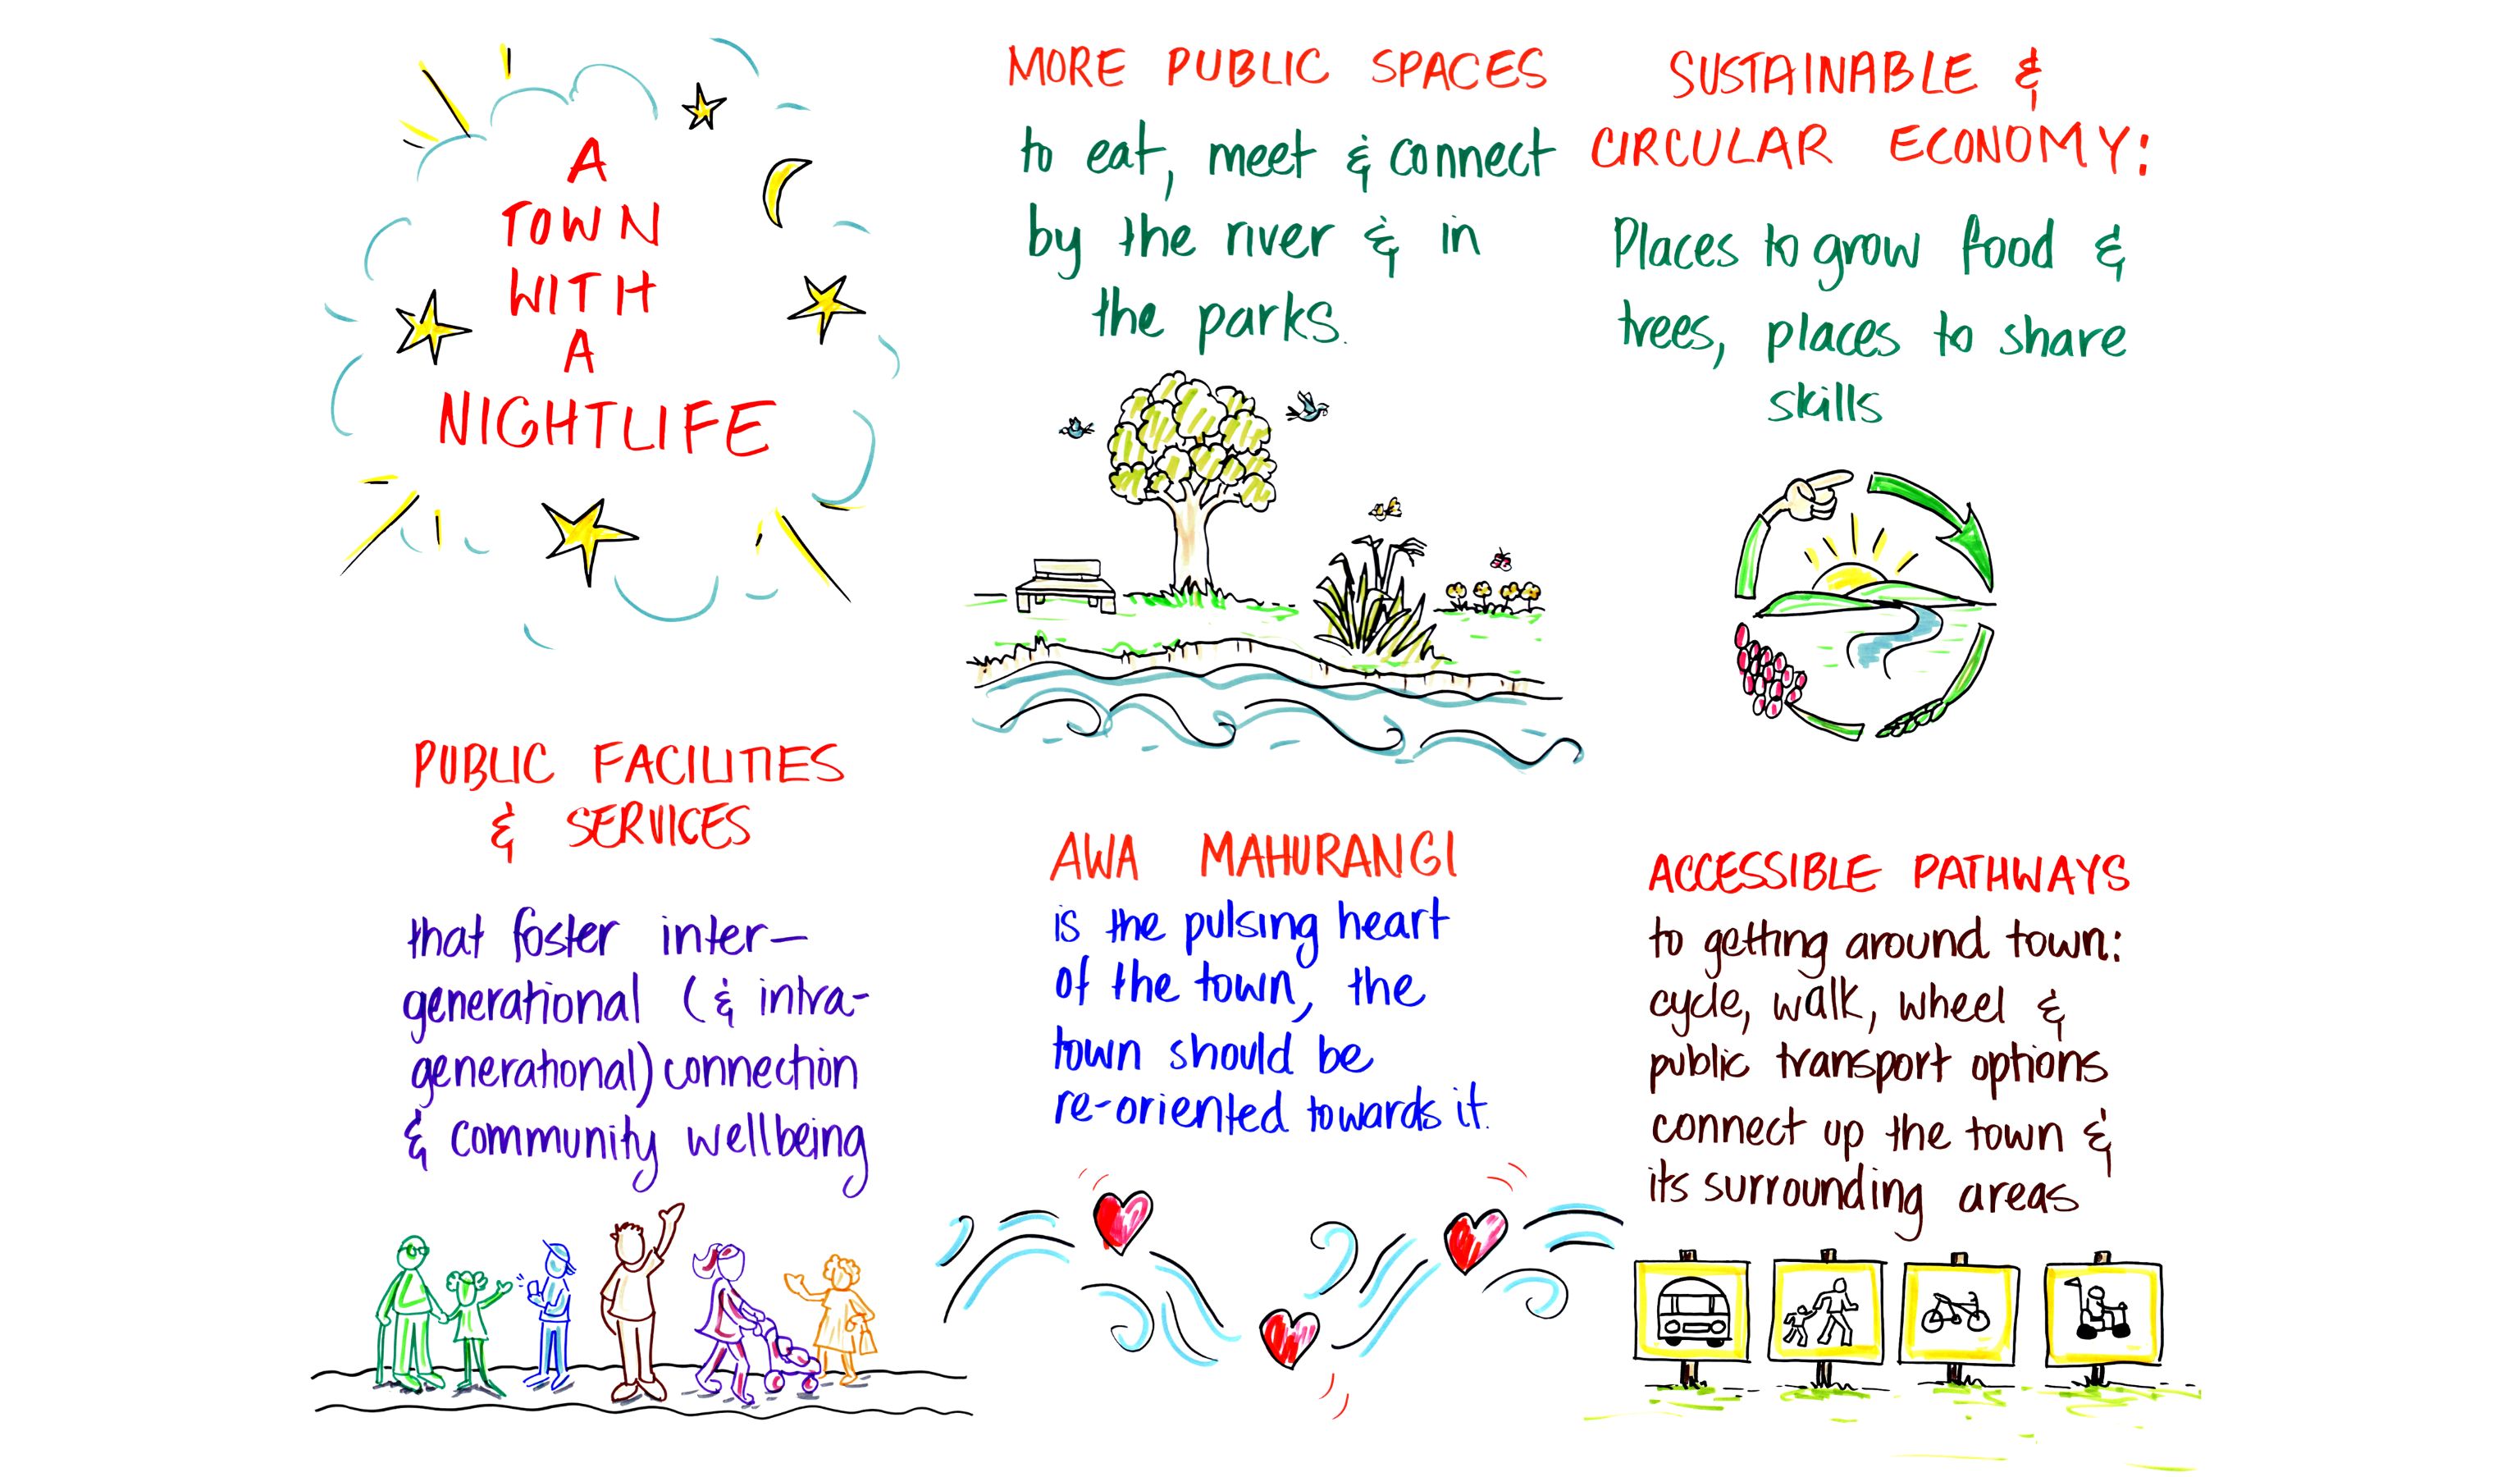 A
TOWN
WITH
A
NIGHTLIFE
MORE PUBLIC SPACES
to eat, meet & connect
by the river & in
the parks.
SUSTAINABLE &
CIRCULAR ECONOMY:
Places to grow food &
trees, places to share
skills
PUBLIC FACILITIES
& SERVICES
that foster inter-
generational (& intra-
generational) connection
& community wellbeing
AWA MAHURANGI
is the pulsing heart
of the town, the
town should be
re-oriented towards it.
ACCESSIBLE PATHWAYS
to getting around town:
cycle, walk, wheel &
public transport options
connect up the town &
its surrounding areas